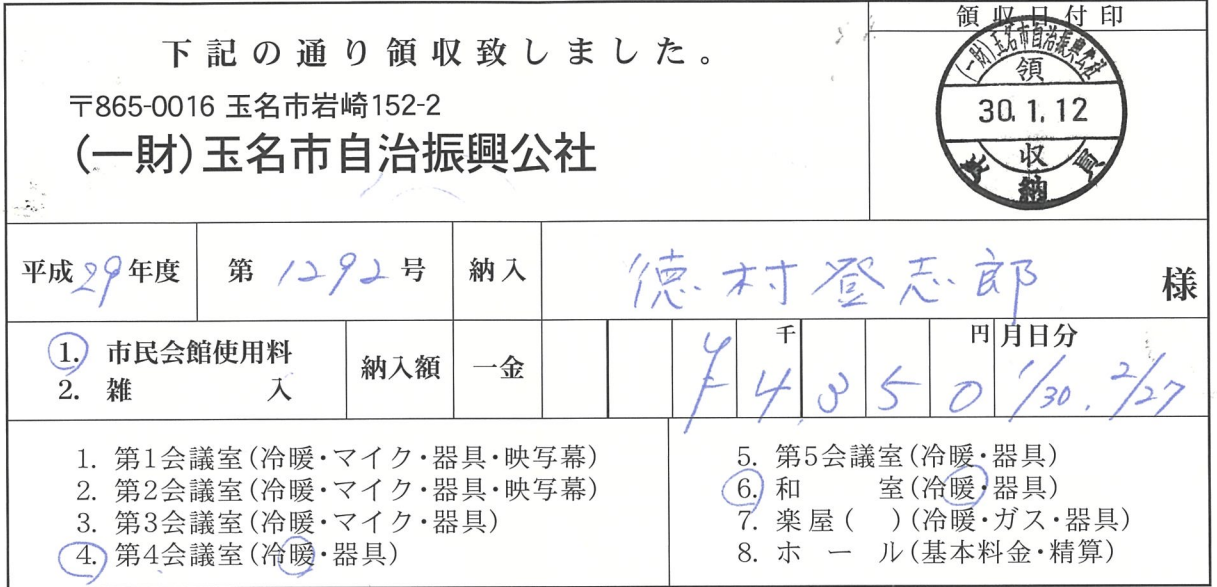 領収日付印
下記の通り領収致しました。
〒865-0016 玉名市岩崎152-2
(一財)玉名市自治振興公社
(一財)玉名市自治振興公社
領
30.1.12
収
出納員
平成29年度 第1292号 納入 徳村登志郎 様
1. 市民会館使用料 納入額 一金 ¥4,350 千 円 月日分 1/30. 2/27
2. 雑入
1. 第1会議室(冷暖・マイク・器具・映写幕)
2. 第2会議室(冷暖・マイク・器具・映写幕)
3. 第3会議室(冷暖・マイク・器具)
4. 第4会議室(冷暖・器具)
5. 第5会議室(冷暖・器具)
6. 和室(冷暖・器具)
7. 楽屋( )(冷暖・ガス・器具)
8. ホール(基本料金・精算)